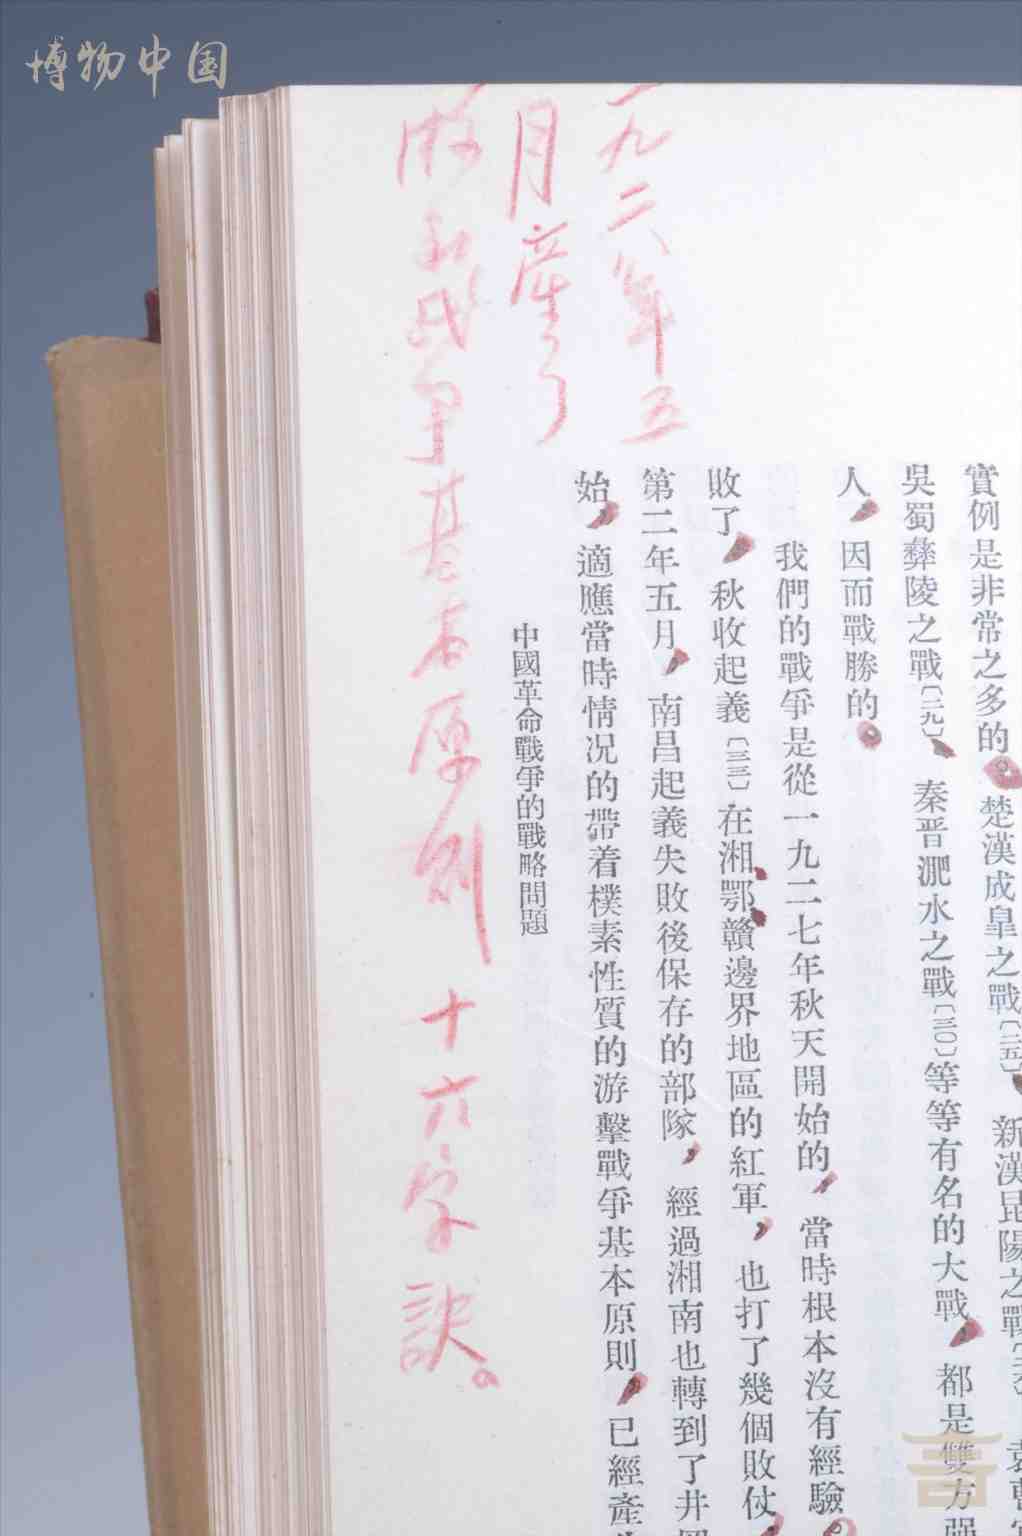 博物中国
一九二八年五
月產了
游击战争基本原则 十六字訣。
實例是非常之多的。楚漢成皐之戰〔二五〕、新漢昆陽之戰〔二六〕、袁曹
吳蜀彝陵之戰〔二九〕、秦晋淝水之戰〔三〇〕等等有名的大戰，都是雙方强
人，因而戰勝的。
我們的戰爭是從一九二七年秋天開始的，當時根本沒有經驗。
敗了，秋收起義〔三三〕在湘鄂贛邊界地區的紅軍，也打了幾個敗仗，
第二年五月，南昌起義失敗後保存的部隊，經過湘南也轉到了井
始，適應當時情况的帶着樸素性質的游擊戰爭基本原則，已經產
中國革命戰爭的戰略問題